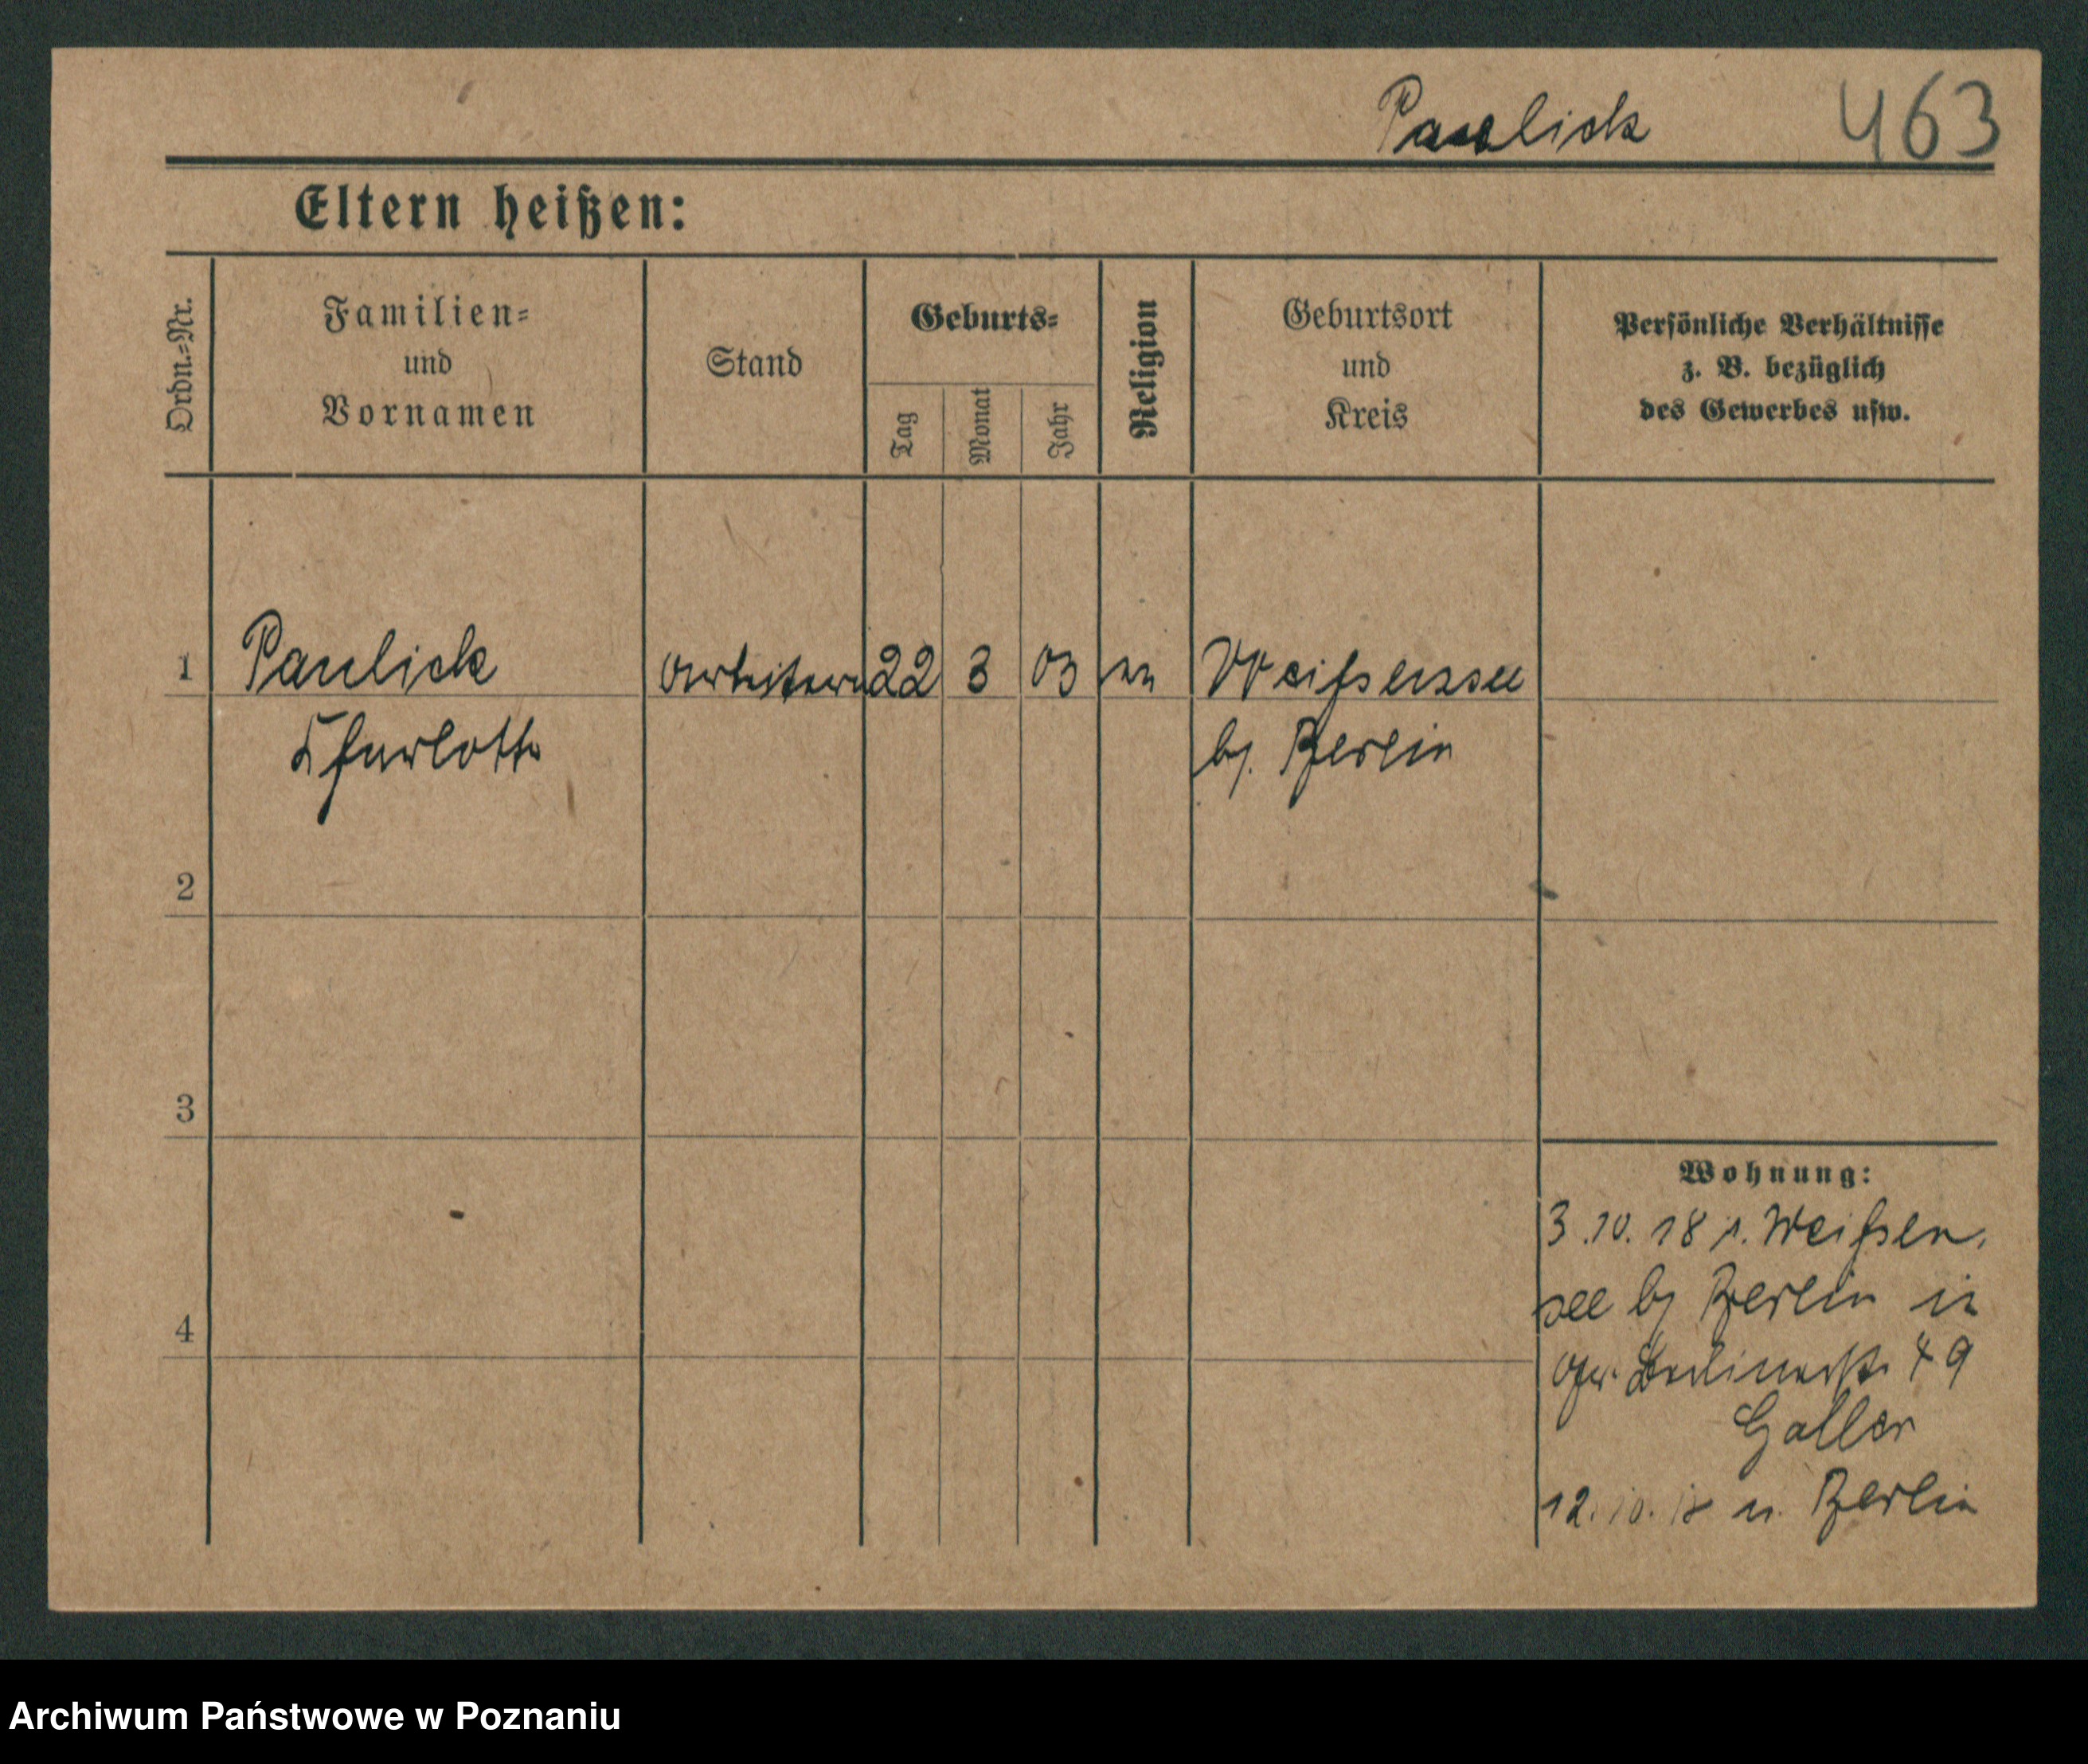 Paulick 463
Eltern heißen:
Ordn.=Nr.
Familien=
und
Vornamen
Stand
Geburts=
Tag
Monat
Jahr
Religion
Geburtsort
und
Kreis
Persönliche Verhältnisse
z. B. bezüglich
des Gewerbes usw.
1 Paulick Arbeiterin 22 3 03 Weißensee
Charlotte b/. Berlin
2
3
Wohnung:
3.10.18 v. Weißen,
see b/ Berlin in
4
Berlinerstr. 49
Galler
12.10.18 n. Berlin
Archiwum Państwowe w Poznaniu